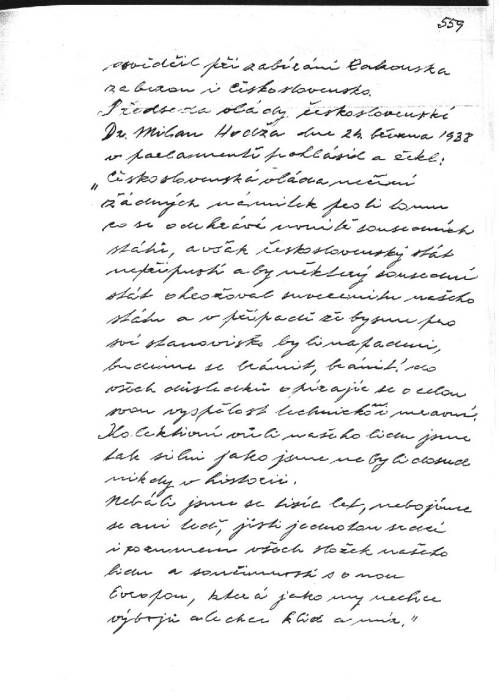 559
osvědčil při zabírání Rakouska
zabezou i Československo.
Předseda vlády československé
Dr. Milan Hodža dne 24. března 1938
v parlamentě prohlásil a řekl:
„Československá vláda nečiní
žádných námitek proti tomu
co se odehrává uvnitř sousedních
států, avšak československý stát
nepřipustí aby některý sousední
stát ohrožoval suverenitu našeho
státu a v případě že bysme pro
své stanovisko byli napadeni,
budeme se bránit, bránit! do
všech důsledků opírajíc se o celou
svou vyspělost technickou i mravní.
Kolektivní vůlí našeho lidu jsme
tak silni jako jsme nebyli dosud
nikdy v historii.
Nebáli jsme se tisíc let, nebojíme
se ani teď, jisti jednotou srdcí
i rozumem všech složek našeho
lidu a součinností s onou
Evropou, která jako my nechce
výbojů ale chce klid a mír."